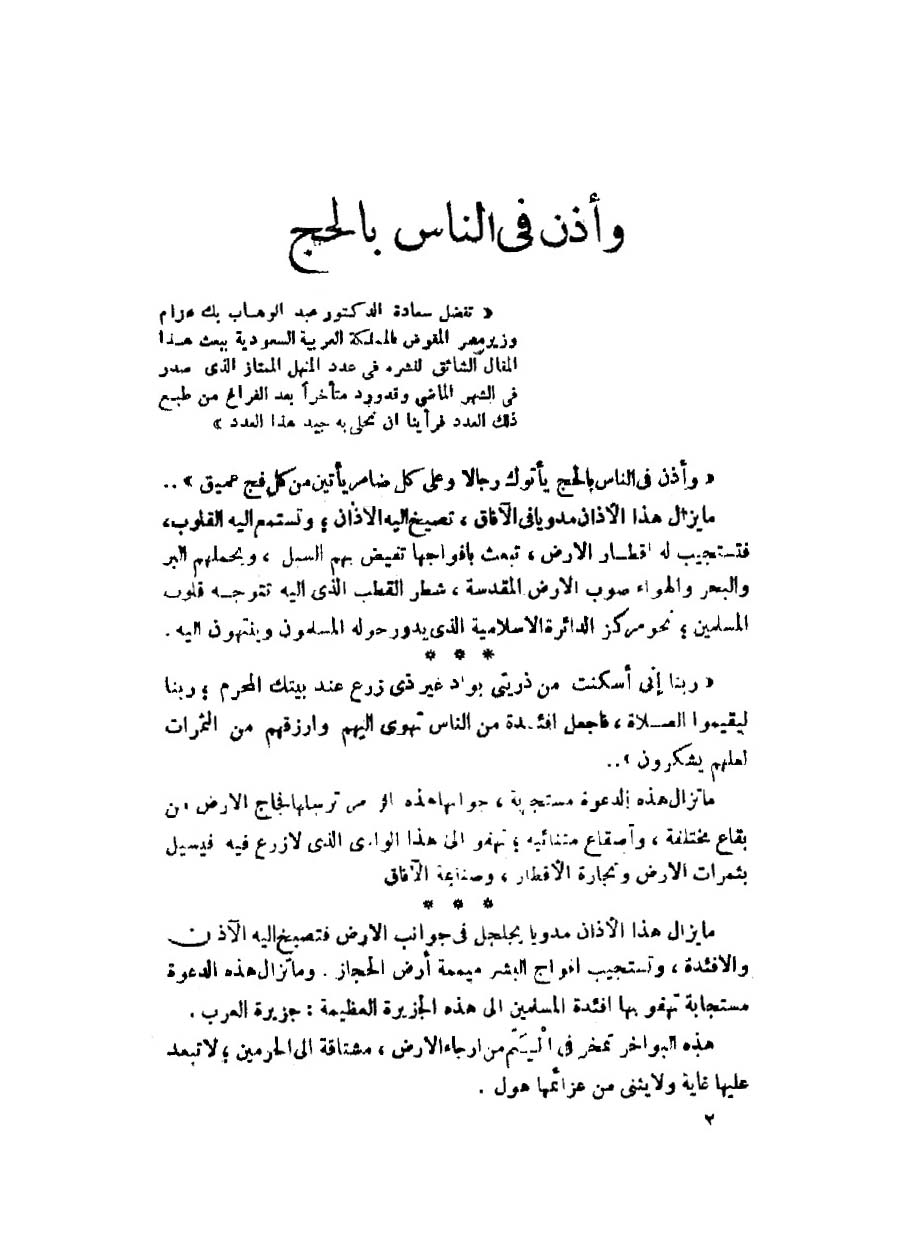 وأذن فى الناس بالحج
« تفضل سعادة الدكتور عبد الوهاب بك عزام
وزير مصر المفوض بالمملكة العربية السعودية ببعث هذا
المقال الشائق لنشره فى عدد المنهل الممتاز الذى صدر
فى الشهر الماضى وقد ورد متأخراً بعد الفراغ من طبع
ذلك العدد فرأينا ان نحلى به جيد هذا العدد »
« وأذن فى الناس بالحج يأتوك رجالا وعلى كل ضامر يأتين من كل فج عميق » ..
مايزال هذا الأذان مدويا فى الآفاق ، تصيخ اليه الاذان ؛ وتستمع اليه القلوب،
فتستجيب له اقطار الارض ، تبعث بافواجها تفيض بهم السبل ، ويحملهم البر
والبحر والهواء صوب الارض المقدسة ، شطر القطب الذى اليه تتوجه قلوب
المسلمين ؛ نحو مركز الدائرة الاسلامية الذى يدور حوله المسلمون وينتهون اليه .
* * *
« ربنا إنى أسكنت من ذريتى بواد غير ذى زرع عند بيتك المحرم ؛ ربنا
ليقيموا الصلاة ، فاجعل افئدة من الناس تهوى اليهم وارزقهم من الثمرات
لعلهم يشكرون » ..
ماتزال هذه الدعوة مستجابة ، جوابها هذه ترسلها فجاج الارض من
بقاع مختلفة ، وأصقاع متنائية ؛ تهفو الى هذا الوادى الذى لازرع فيه فيسيل
بثمرات الارض وتجارة الأقطار ، وصناعة الآفاق
* * *
مايزال هذا الأذان مدويا يجلجل فى جوانب الارض فتصيخ اليه الآذان
والافئدة ، وتستجيب افواج البشر ميممة أرض الحجاز . وماتزال هذه الدعوة
مستجابة تهفو بها افئدة المسلمين الى هذه الجزيرة العظيمة : جزيرة العرب .
هذه البواخر تمخر فى الْيَمّ من ارجاء الارض ، مشتاقة الى الحرمين ؛ لاتبعد
عليها غاية ولايثنى من عزائمها هول .
٢